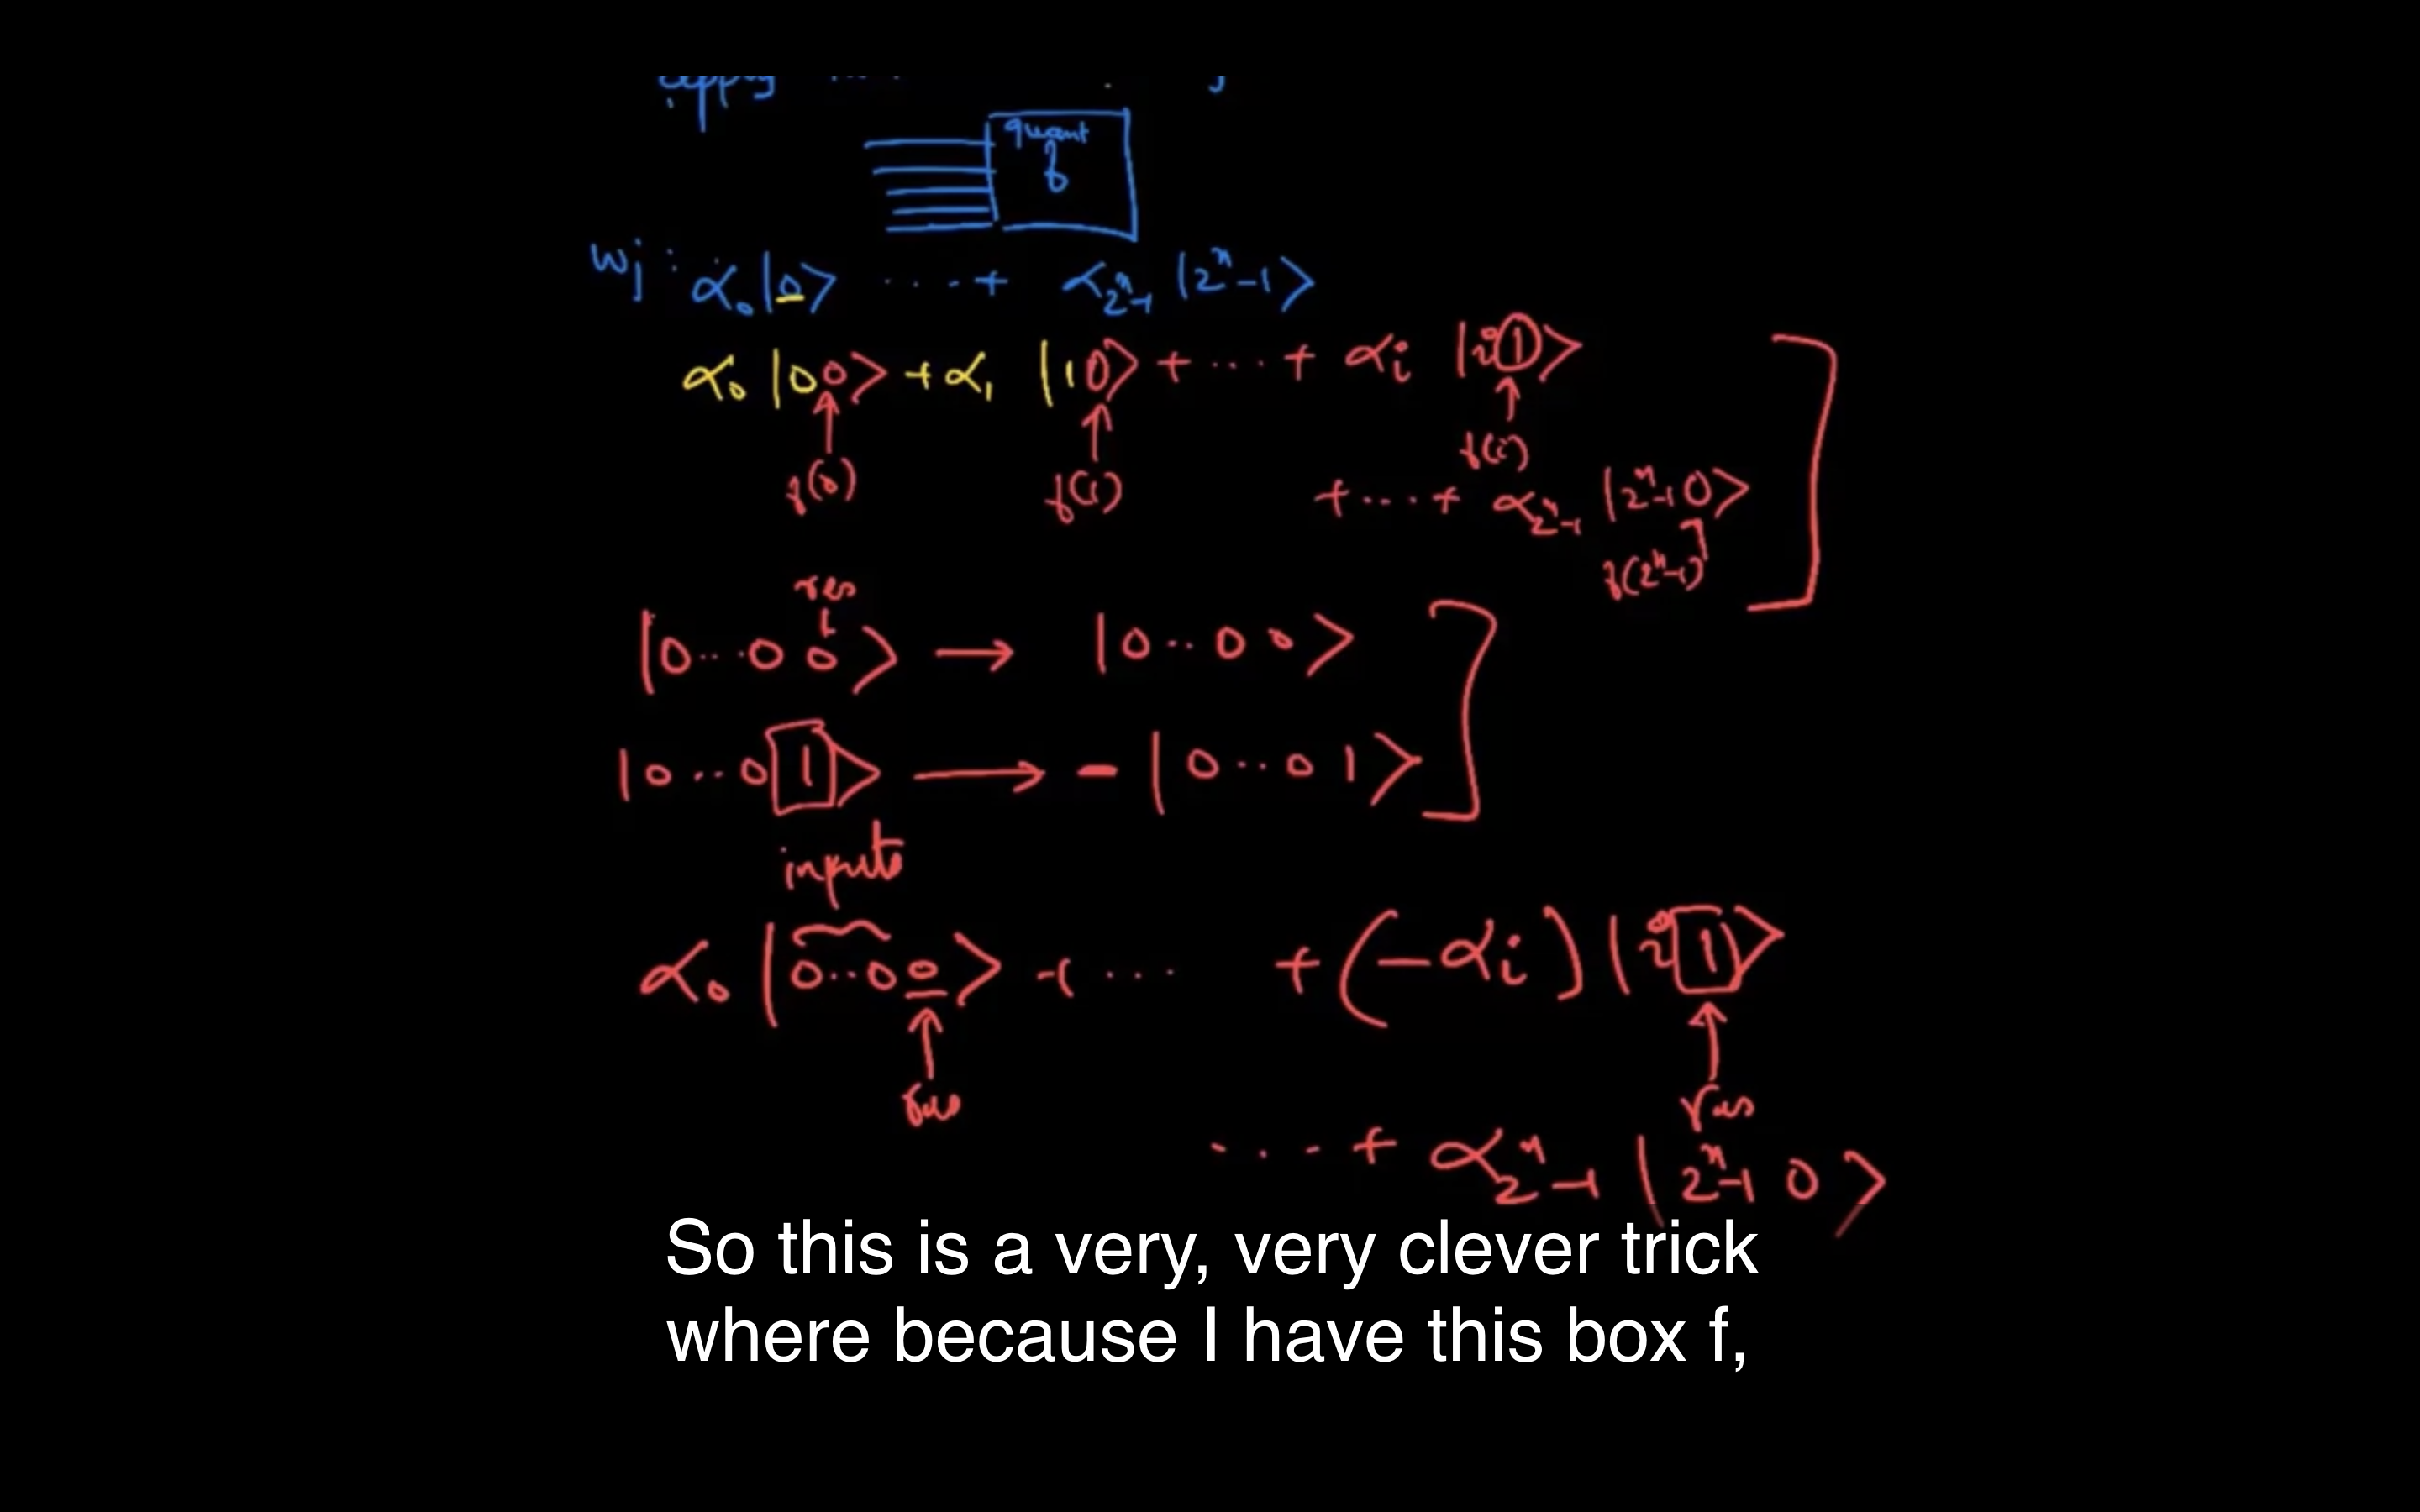 quant
f
wj : α₀|0⟩ ....+ α_{2ⁿ-1} |2ⁿ-1⟩
α₀ |00⟩ + α₁ |10⟩ + ... + αi |i1⟩
f(0) f(1) f(i)
+ ... + α_{2ⁿ-1} |2ⁿ-1 0⟩
f(2ⁿ-1)
res
|0...0 0⟩ → |0..0 0⟩
|0...0 1⟩ → - |0..0 1⟩
inputs
α₀ |0..0 0⟩ + ... + (-αi) |i 1⟩
res res
... + α_{2ⁿ-1} |2ⁿ-1 0⟩
So this is a very, very clever trick
where because I have this box f,